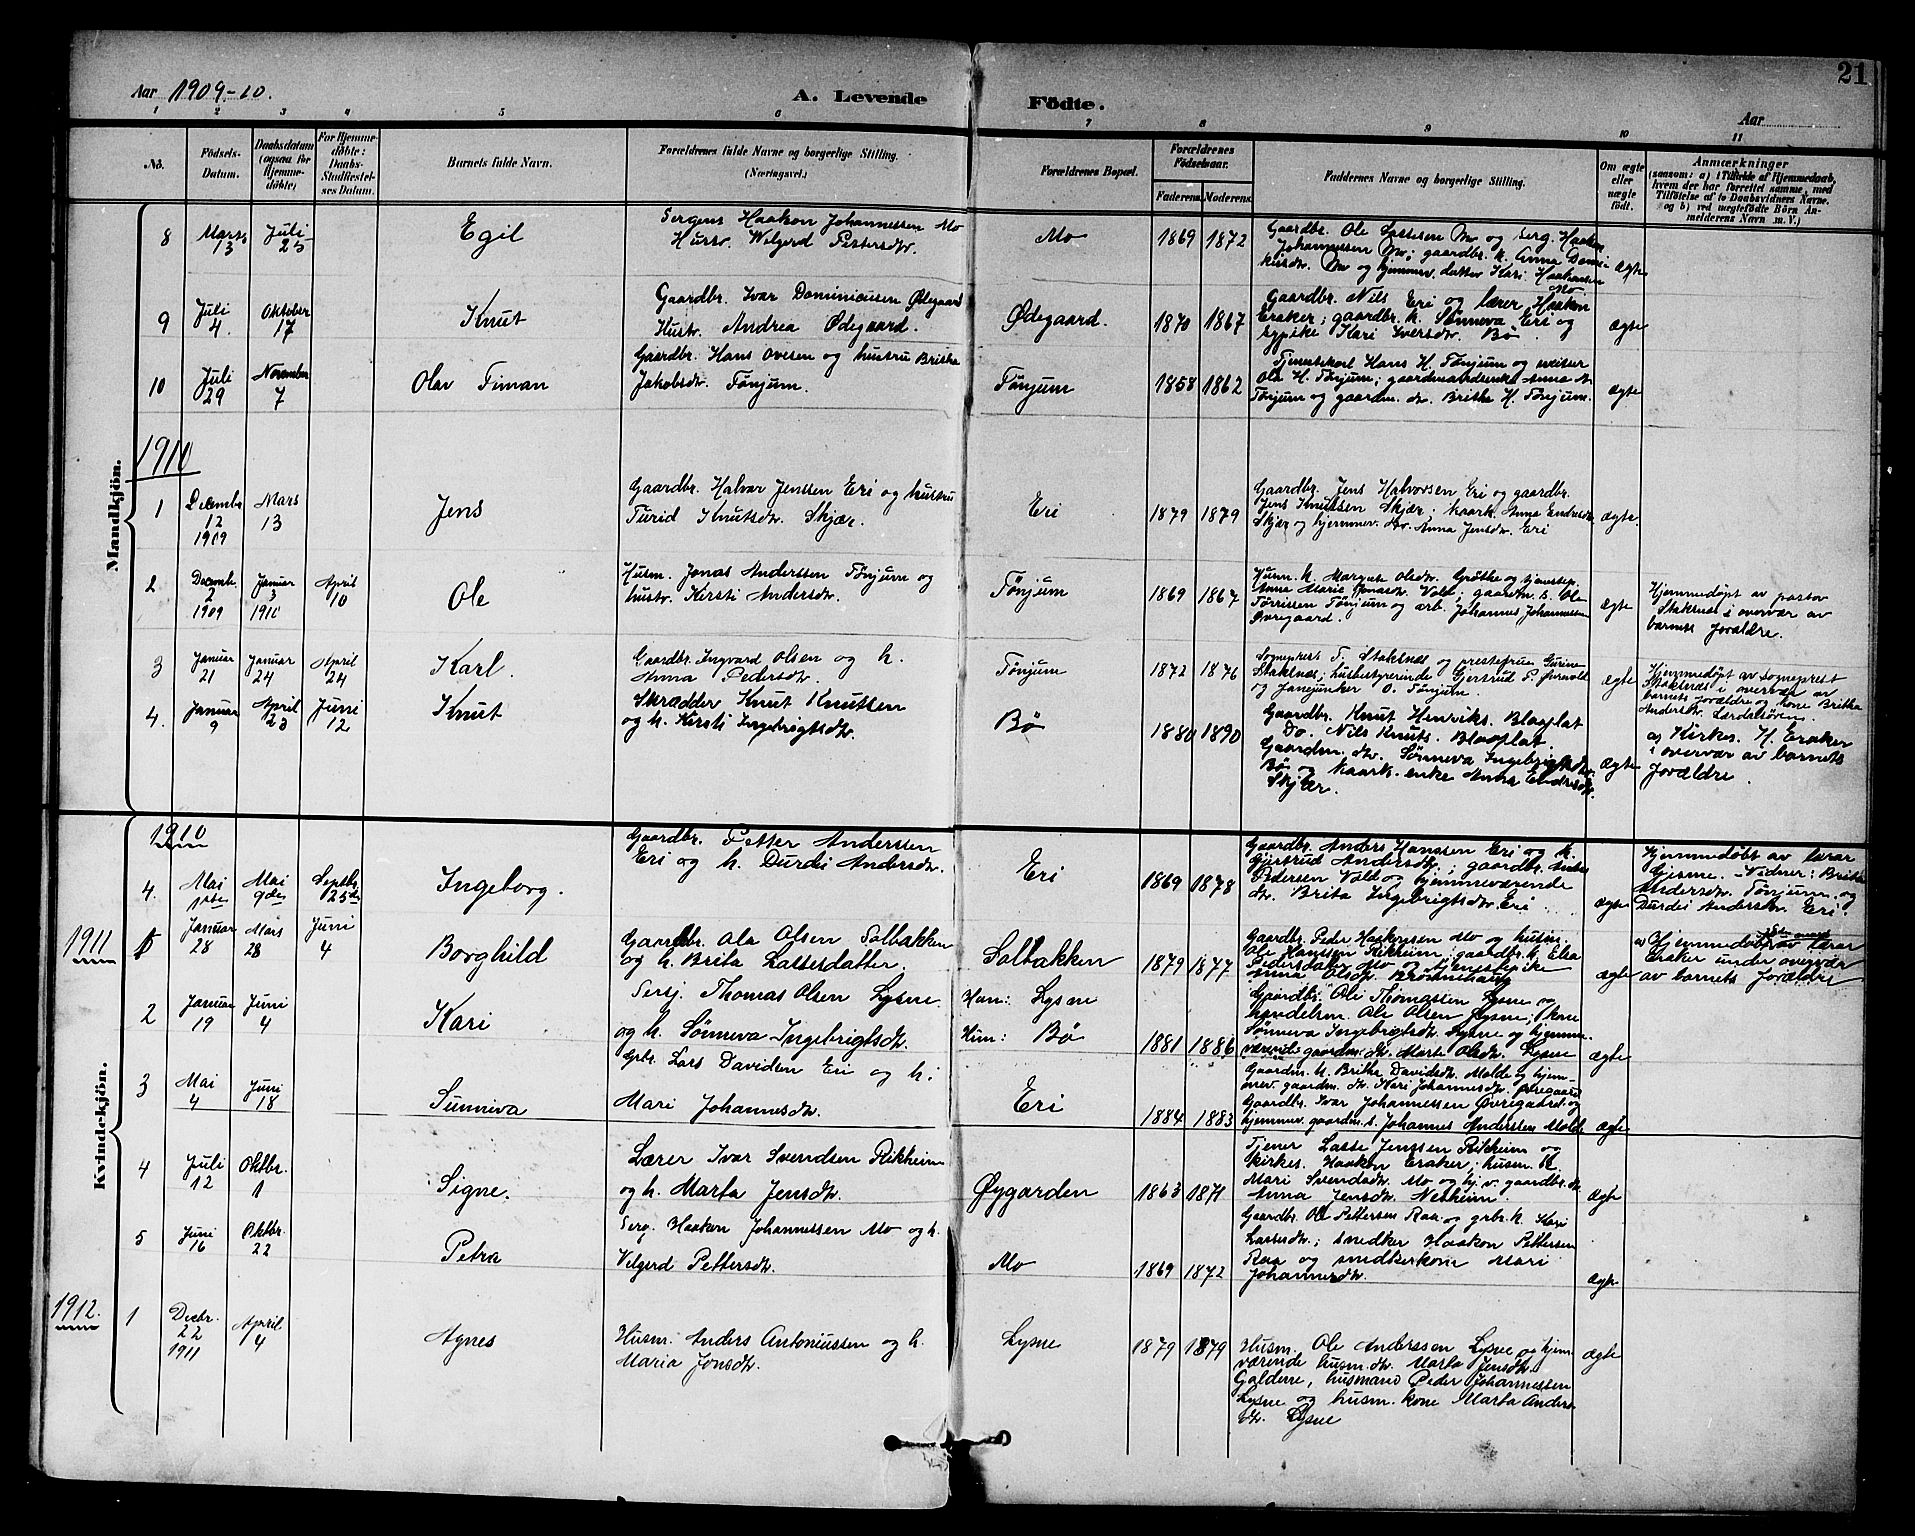 21
Aar 1909-10.
A. Levende Födte.
Aar
1 2 3 4 5 6 7 8 9 10 11
No.
Födsels-Datum.
Daabsdatum (ogsaa for Hjemmedöbte)
For Hjemmedöbte: Daabs-Stadfæstelses Datum.
Barnets fulde Navn.
Forældrenes fulde Navne og borgerlige Stilling. (Næringsvei.)
Forældrenes Bopæl.
Forældrenes Födselsaar.
Faderens. Moderens.
Faddernes Navne og borgerlige Stilling.
Om ægte eller uægte födt.
Anmærkninger
(saasom: a) i Tilfælde af Hjemmedaab, hvem der har forrettet samme, med Tilföielse af to Daabsvidners Navne. og b) ved uægtefödte Börn Anmelderens Navn m. V.)
Mandkjön.
8 Mars 13 Juli 25 Egil
Sergent Haakon Johannessen Mo
Hustr. Velgerd Pettersdtr.
Mo 1869 1872
Gaardbr. Ole Lassesen Mo og Serg. Haakon
Johannessen Mo; gaardbr. k. Anna Domi-
kusdtr. Mo og hjemmev. datter Kari Haakonsen
Mo
ægte
9 Juli 4. Oktober 17 Knut
Gaardbr. Ivar Dominicusen Ødegaard
Hustr. Andrea Ødegaard.
Ødegaard. 1870 1867
Gaardbr. Nils Eri og lærer Haakon
Eraker; gaardbr. k. Sönneva Eri og
sypike Kari Iversdtr. Bö
ægte
10 Juli 29 November 7 Olav Timan
Gaardbr. Hans Ovesen og hustru Britha
Jakobsdtr. Tönjum.
Tönjum 1858 1862
Tjenestekarl Hans H. Tönjum og
Ola H. Tönjum; gaardmandsenke Anna
Tönjum og gaardm. dtr. Britha H. Tönjum.
ægte
1910
1 Decembr 12 1909 Mars 13 Jens
Gaardbr. Halvar Jenssen Eri og hustru
Turid Knutsdtr. Skjær.
Eri 1879 1879
Gaardbr. Jens Halvorsen Eri og gaardbr.
Jens Knutssen Skjær; kaark. Anna Endresdtr.
Skjær og hjemmev. dtr. Anna Jensdtr. Eri
ægte.
2 Decemb. 2 1909 Januar 3 1910 April 10 Ole
Husm. Jonas Anderssen Tönjum og
hustr. Kersti Andersdtr.
Tönjum 1869 1867
Husm. k. Margrete Olsdtr. Gröthe og tjenestep.
Anne Marie Jonasdtr. Vold; gaardm. s. Ole
Törrissen Tönjum og arb. Johannes Johannessen
Øvregaard.
ægte
Hjemmedöpt av pastor
Staksnæs i overvær av
barnets forældre.
3 Januar 21 Januar 24 April 24 Karl.
Gaardbr. Ingvard Olsen og h.
Anna Pedersdtr.
Tönjum 1872 1876
Sogneprest T. Staksnæs og prestefrue Gurine
Staksnæs; husbestyrerinde Gjertrud P. Ørevold
og Janejunker O. Tönjum.
ægte
Hjemmedöpt av Sogneprest
Staksnæs i overvær av
barnets forældre og kone Britha
Andersdtr. Lærdalsören.
4. Januar 9 April 23 Juni 12 Knut
Skrædder Knut Knutsen
og h. Kersti Ingebrigtsdtr.
Bö 1880 1890
Gaardbr. Knut Henriks. Blaaflat
Do. Nils Knuts. Blaaflat.
Gaardm. dtr. Sönneva Ingebrigtsdtr.
Bö og kaark. enke Anna Endresdtr.
Skjær.
ægte
a) Kirkes. H. Eraker
i overvær av barnets
forældre.
Kvindekjön.
1910
4. Mai 1ste Mai 9de Septbr. 25de Ingeborg.
Gaardbr. Petter Anderssen
Eri og h. Durdei Andersdtr.
Eri 1869 1878
Gaardbr. Anders Hanssen Eri og k.
Gjertrud Andersdtr.; gaardbr. Anders
Pedersen Vold og hjemmeværende
dtr. Brita Ingebrigtsdtr. Eri.
ægte
Hjemmedöbt av lærar
Gjesme. - Vidner: Britha
Andersdtr. Tönjum og
Durdei Andersdtr. Eri.
1911
1 Januar 28 Mars 28 Juni 4 Borghild
Gaardbr. Ola Olsen Solbakken
og h. Brita Lassesdatter.
Solbakken 1879 1877
Gaardbr. Peder Haakonsen Mo og husm.
Ole Hanssen Rikheim; gaardbr. k. Elsa
Pedersdatter Mo og tjenestepike
Anna Olsdtr.
ægte
a) Hjemmedöbt av lærar
Eraker under overvær
av barnets forældre
2 Januar 19 Juni 4 Kari
Sersj. Thomas Olsen Lysne
og h. Sönneva Ingebrigtsdtr.
Han: Lysne
Hun: Bö
1881 1886
Gaardbr. Ole Thomassen Lysne og
handelsm. Ole Olsen Lysne; kone
Sönneva Ingebrigtsdtr. Lysne og hjemme-
værende gaardm. dtr. Marte Olsdtr. Lysne
ægte
3 Mai 4 Juni 18 Sunneva
Grbr. Lars Davidsen Eri og h.
Mari Johannesdtr.
Eri 1884 1883
Gaardm. k. Britha Davidsdtr. Molde og hjem-
mev. gaardm. dtr. Kari Johannesdtr. Øvregaard
Gaardbr. Ivar Johannessen Øvregaard og
hjemmev. gaardm. s. Johannes Anderssen Molde
ægte
4 Juli 12 Oktbr. 1 Signe.
Lærer Ivar Svendsen Rikheim
og h. Marta Jensdtr.
Øygarden 1863 1871
Tjener Lasse Jenssen Rikheim og
Kirkes. Haakon Eraker; husm. k.
Mari Svendsdtr. Mo og hj.v. gaardbr. dtr.
Anna Jensdtr. Nesheim.
ægte
5 Juni 16 Oktbr. 22 Petra
Serg. Haakon Johannessen Mo og h.
Velgerd Pettersdtr.
Mo 1869 1872
Gaardbr. Ole Pettersen Raa og grbr. k. Kari
Lassesdtr.; snedker Haakon Pettersen
Raa og snedkerkone Mari
Johannesdtr.
ægte
1912.
1 Decbr. 22 1911 April 4 Agnes
Husm. Anders Antoniussen og h.
Maria Jonsdtr.
Lysne 1879 1879
Husm. Ole Anderssen Lysne og hjem-
værende husm. dtr. Marta Jensdtr.
Galderne, husmand Peder Johannessen
Lysne og husm. kone Marta Anders-
dtr. Lysne
ægte